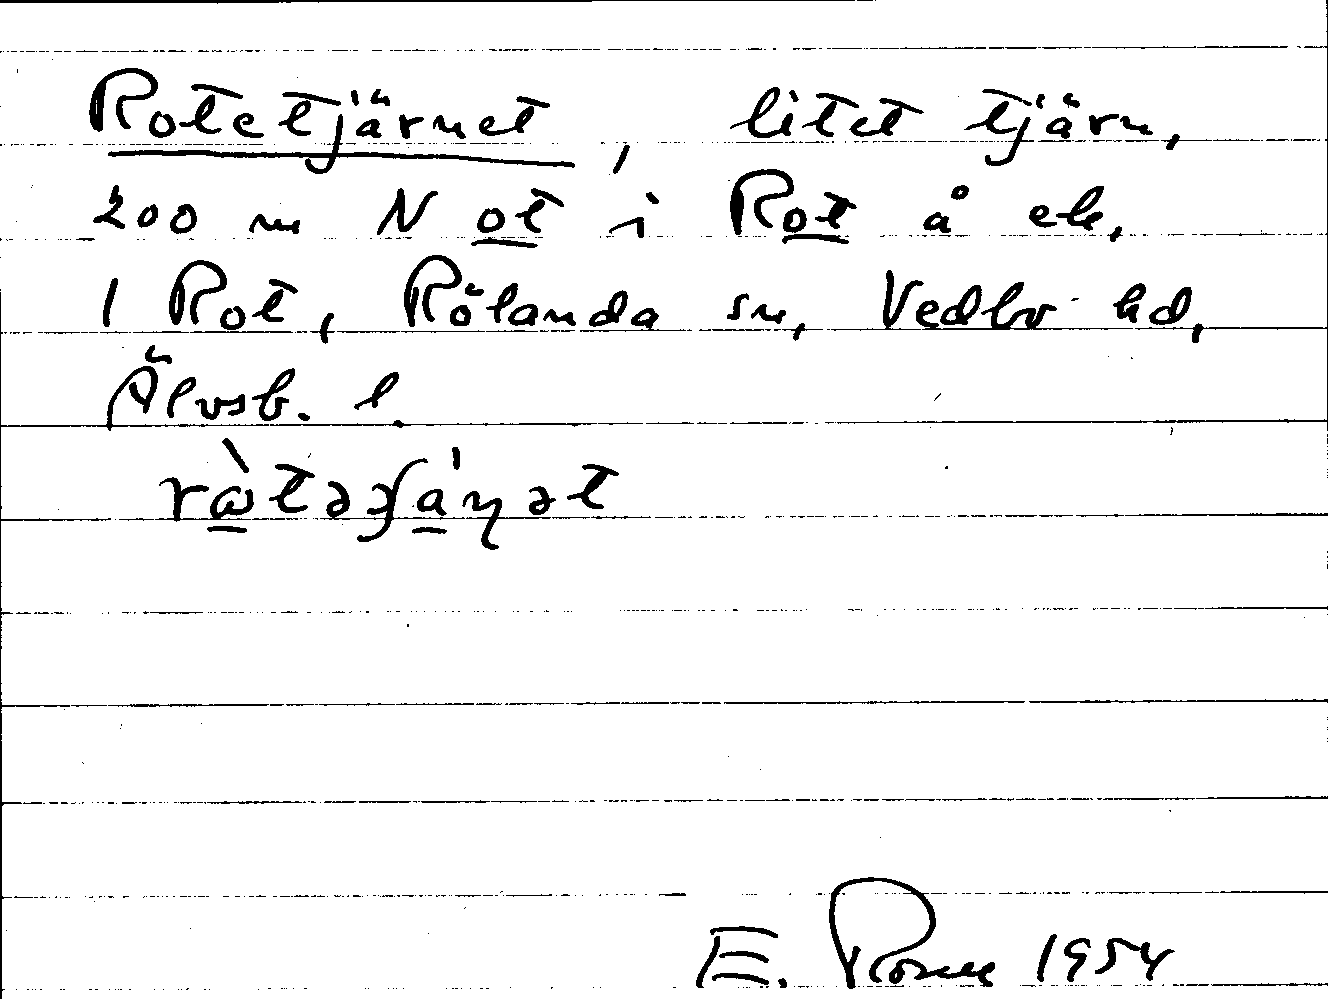 Rotetjärnet, litet tjärn,
200 m N ot i Rot å ek,
1 Rot, Rölanda sn, Vedbo hd,
Älvsb. l.
E. Rosell 1954